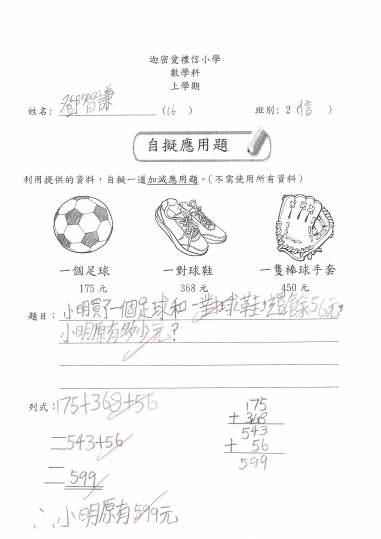 迦密愛禮信小學
數學科
上學期
姓名: 鄧智謙 (16) 班別: 2 (信)
自擬應用題
利用提供的資料，自擬一道加減應用題。(不需使用所有資料)
一個足球 一對球鞋 一隻棒球手套
175 元 368 元 450 元
題目: 小明買了一個足球和一對球鞋，還餘56元，
小明原有多少元？
列式: 175+368+56
=543+56
=599
175
+ 368
543
+ 56
599
∴小明原有599元